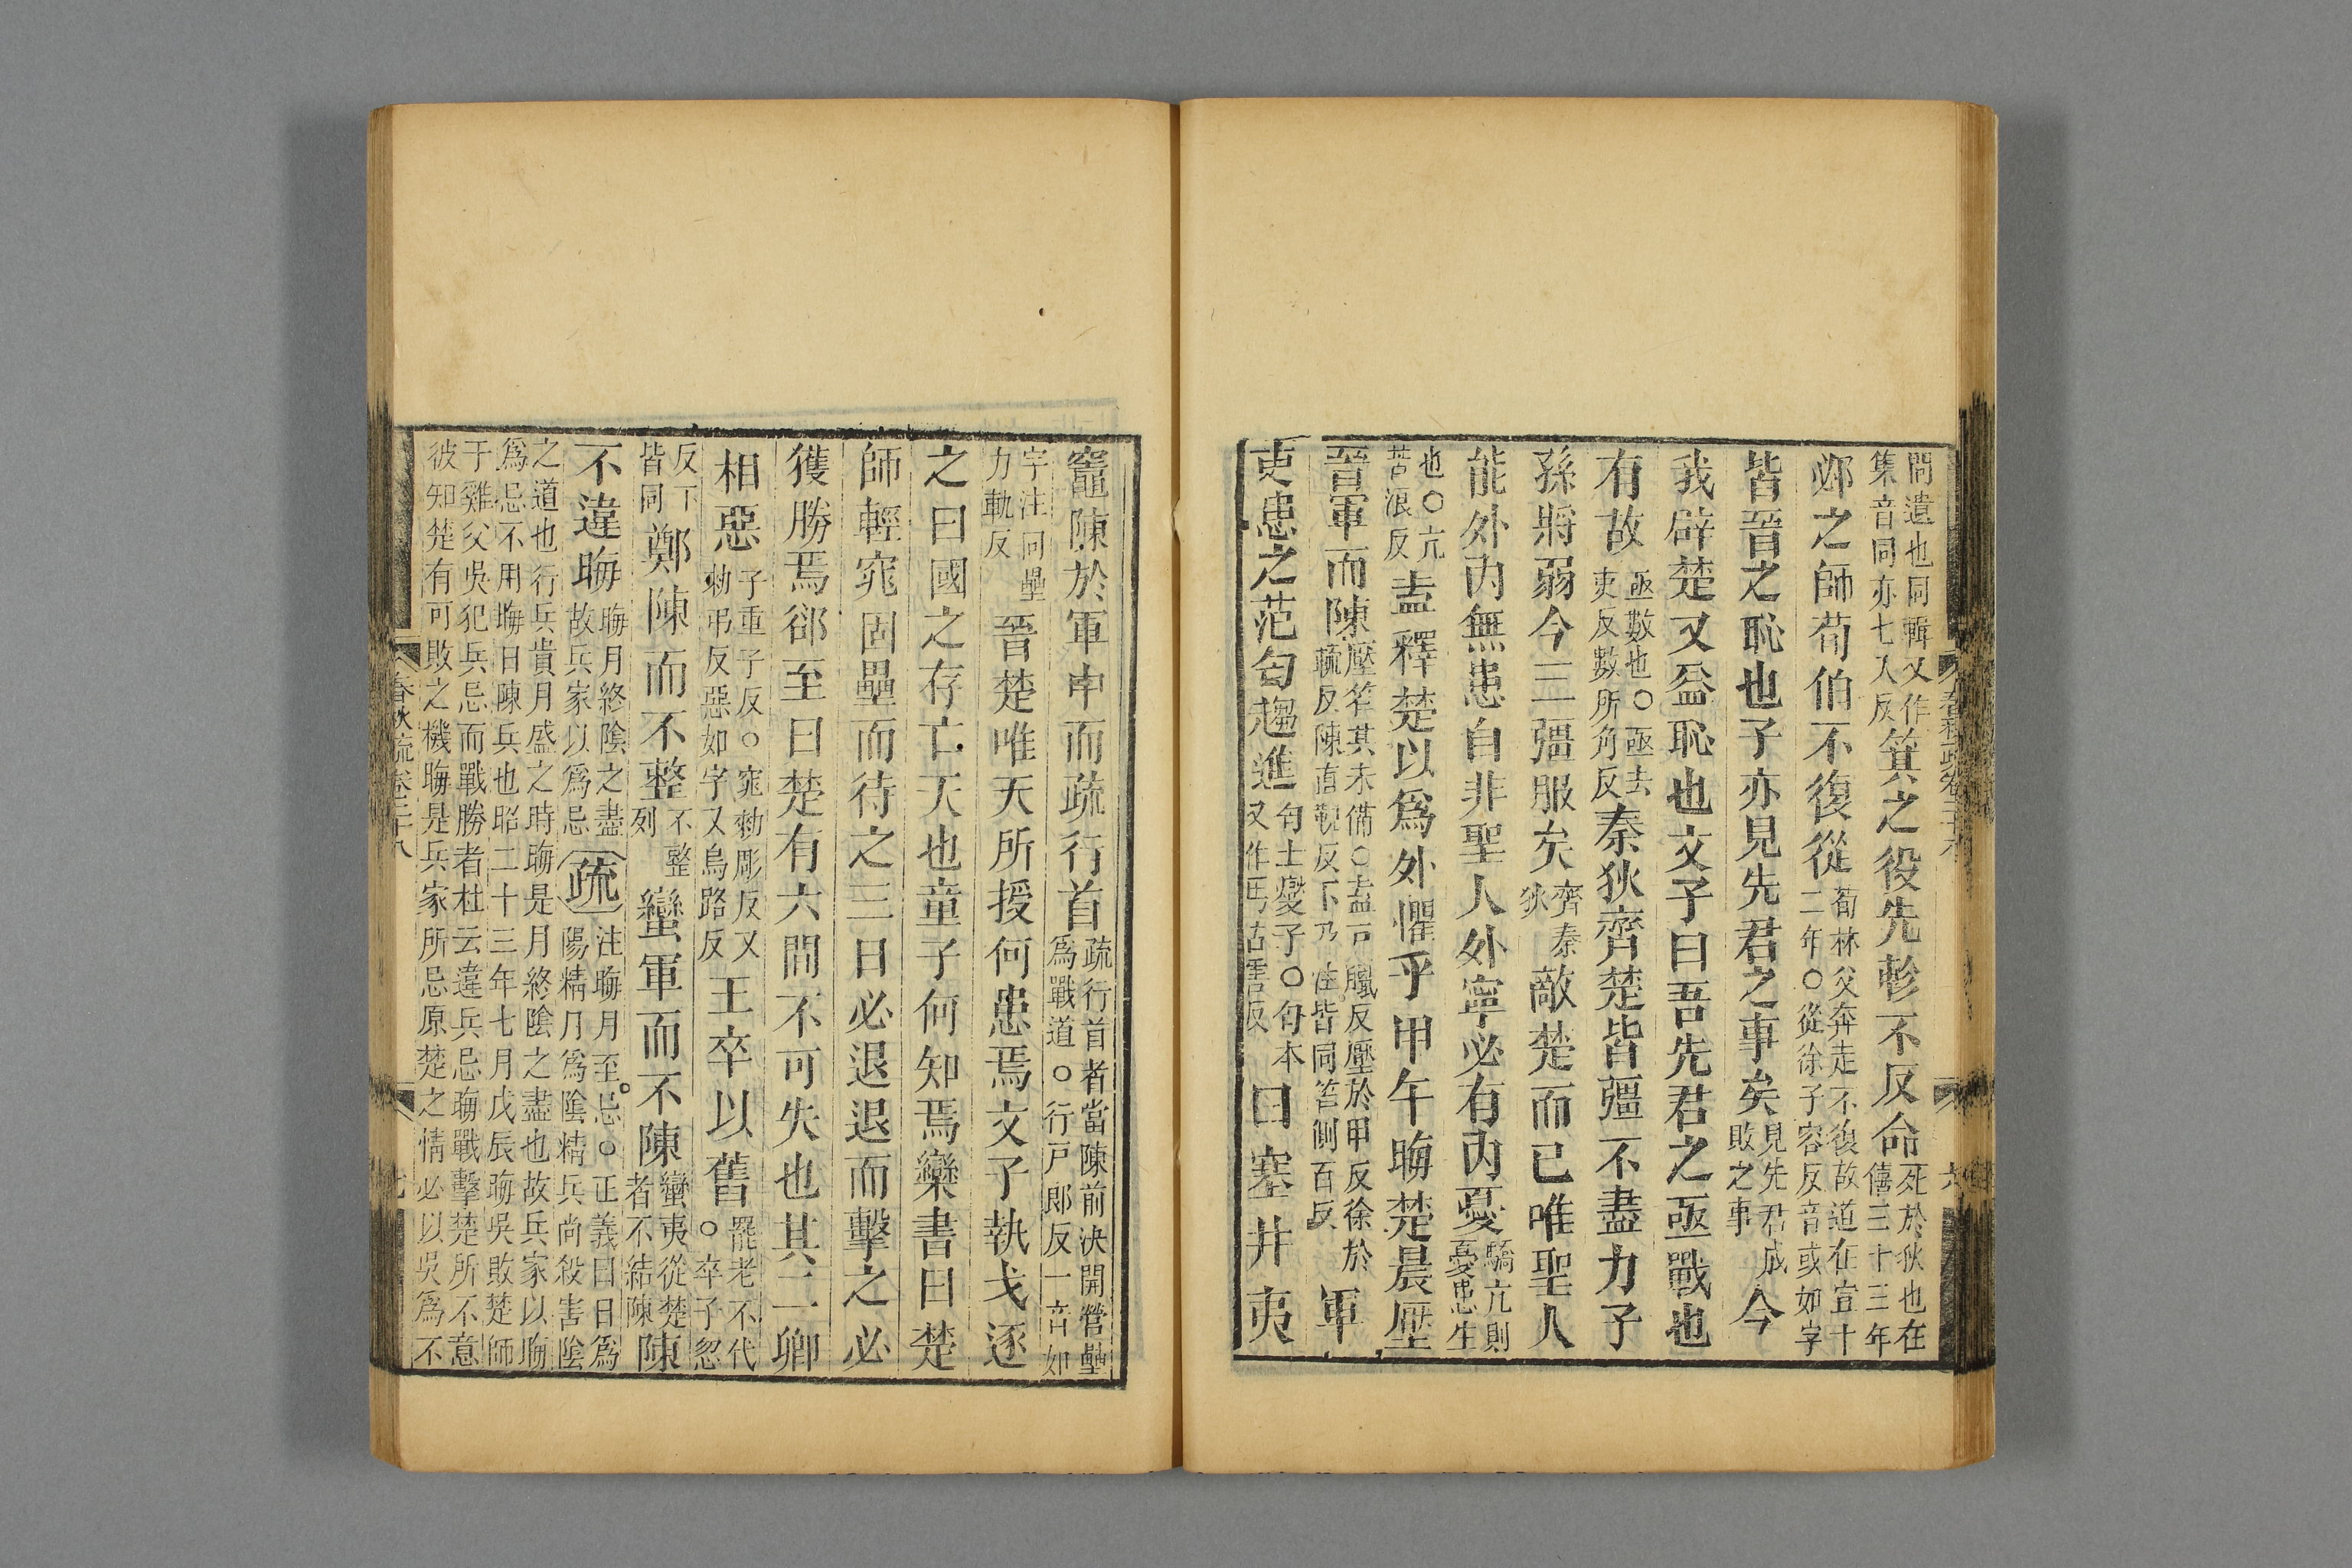 問遺也同輯又作
集音同亦七入反
箕之役先軫不反命
死於狄也在
僖三十三年
邲之師荀伯不復從
荀林父奔走不復故道在宣十
二年○從徐子容反音或如字
皆晉之恥也子亦見先君之事矣
見先君成
敗之事
今
我辟楚又益恥也文子曰吾先君之亟戰也
有故
亟數也○亟去
吏反數所角反
秦狄齊楚皆彊不盡力子
孫將弱今三彊服矣
齊秦
狄
敵楚而已唯聖人
能外內無患自非聖人外寧必有內憂
驕亢則
憂患生
也○亢
苦浪反
盍釋楚以爲外懼乎甲午晦楚晨壓
晉軍而陳
壓笮其未備○盍戸臘反壓於甲反徐於
輒反陳直覲反下及注皆同笮側百反
軍
吏患之范匄趨進
匄士燮子○匄本
又作丐古害反
曰塞井夷
春秋疏卷二十八
六
竈陳於軍中而疏行首
疏行首者當陳前決開營壘
爲戰道○行戸郎反一音如
字注同壘
力軌反
晉楚唯天所授何患焉文子執戈逐
之曰國之存亡天也童子何知焉欒書曰楚
師輕窕固壘而待之三日必退退而擊之必
獲勝焉郤至曰楚有六間不可失也其二卿
相惡
子重子反○窕勑彫反又
勑弔反惡如字又烏路反
王卒以舊
罷老不代
○卒子忽
反下
皆同
鄭陳而不整
不整
列
蠻軍而不陳
蠻夷從楚
者不結陳
陳
不違晦
晦月終陰之盡
故兵家以爲忌
疏
注晦月至忌○正義曰日爲
陽精月爲陰精兵尚殺害陰
之道也行兵貴月盛之時晦是月終陰之盡也故兵家以晦
爲忌不用晦日陳兵也昭二十三年七月戊辰晦吳敗楚師
于雞父吳犯兵忌而戰勝者杜云違兵忌晦戰擊楚所不意
彼知楚有可敗之機晦是兵家所忌原楚之情必以吳爲不
春秋疏卷二十八